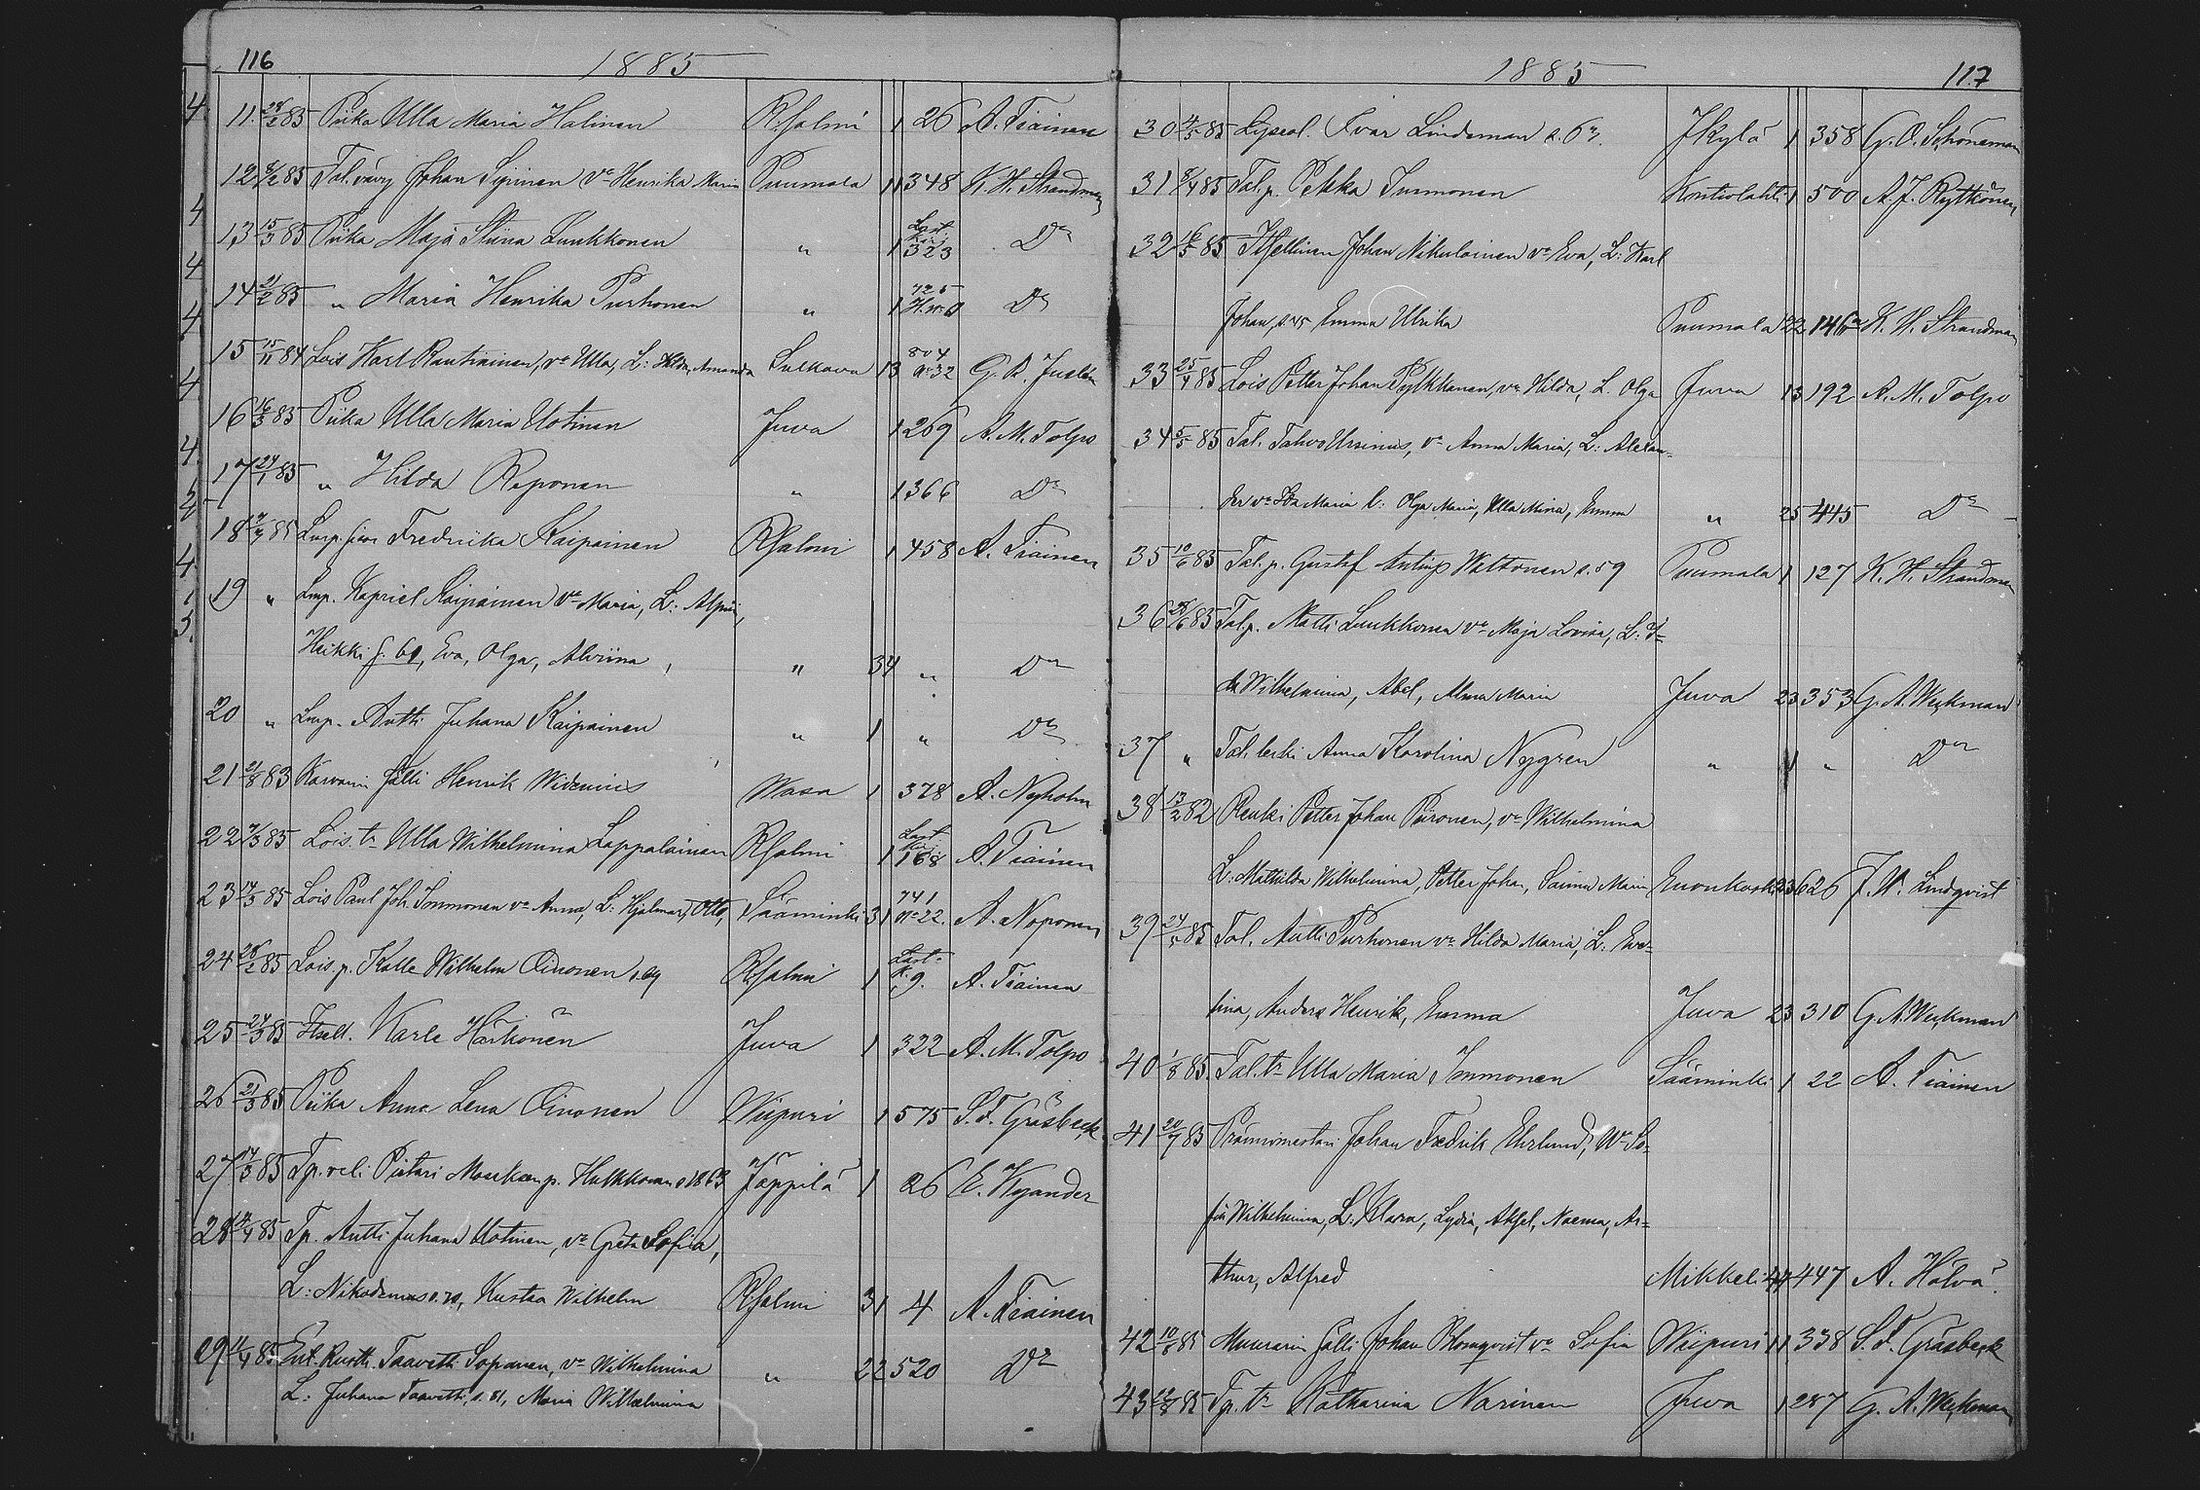 116 1885
11. 28/2 85 Piika Ulla Maria Halinen R.salmi 1 26 A. Tiainen
12 85 Tal. vävy Johan Syrinen Vo Henrika Maria Puumala 11 348 K. H. Strandman
13 15/3 85 Piika Maja Stiina Luukkonen " 1 323 Do
14 85 " Maria Henrika Purhonen " 1 Do
15 15/11 84 Lois Karl Rautiainen, vo Ulla, L: Hilda, Amanda Sulkava 13 804 No 32 G. R.
16 16/3 85 Piika Ulla Maria Utotinen Juva 1 269 A. M. Tolpo
17 24/1 85 " Hilda Reponen " 1 366 Do
18 85 Fredrika Kaipainen R.salmi 1 458 A. Tiainen
19 " Lmp. Kapriel Kaipainen Vo Maria, L: Alpiin,
Heikki s. 69, Eva, Olga, Alviina, " 34 " Do
20 " Lmp. Antti Juhana Kaipainen " 1 " Do
21 21/8 83 Karvarin sälli Henrik Widenius Wasa 1 378 A. Nyholm
22 85 Lois. tr Ulla Wilhelmina Lappalainen R.salmi 1 168 A. Tiainen
23 14/3 85 Lois Paul Joh. Immonen vo Anna, L: Hjalmar, Otto, Sääminki 31 741 No 22. A. Noponen
24 28/2 85 Lois. p. Kalle Wilhelm Oinonen s. 69 R.salmi 1 9. A. Tiainen
25 24/3 85 Itsell. Karle Härkönen Juva 1 322 A. M. Tolpo
26 21/3 85 Piika Anna Lena Oinonen Wiipuri 1 575 S. F. Gräsbeck
27 17/3 85 Tp. veli Pietari Maukkasp. Hulkkonen s 1863 Jäppilä 1 26 E. Kyander
28 85 Tp. Antti Juhana Utotinen, vo Greta Sofiia,
L: Nikodemus s. 70, Kustaa Wilhelm R.salmi 31 4 A. Tiainen
29 85 Ent. Rusth. Taavetti Sopanen, vo Wilhelmina " 22 520 Do
L: Juhana Taavetti, s. 81, Maria Wilhelmina
1885 117
30 4/5 85 Lyseol. Ivar Lindeman s. 67. Jkylä 1 358 G. O. Schöneman
31 85 Tal. p. Pekka Immonen Kontiolahti 1 500 A. J. Rytkönen
32 85 Itsellinen Johan Nikulainen vo Eva, L: Karl
Johan, s. 45 Emma Ulrika Puumala 22 146 K. H. Strandman
33 25/4 85 Lois Petter Johan Pylkkänen, vo Hilda, L. Olga Juva 13 192 A. M. Tolpo
34 5/5 85 Tal. Tahvo Ursinus, vo Anna Maria, L: Alexan=
der vo Ida Maria L: Olga Maria, Ulla Miina, Emma " 25 445 Do
35 10/6 85 Tal. p. Gustaf Anting Wättonen s. 59 Puumala 1 127 K. H. Strandman
36 85 Tal. p. Matti Luukkonen vo Maja Lovisa, L: I=
da Wilhelmina, Abel, Alma Maria Juva 23 353 G. A. Weckman
37 " Tal. leski Anna Karolina Nygren " 1 " Do
38 13/2 82 Renki Petter Johan Piironen, vo Wilhelmina
L: Mathilda Wilhelmina, Petter Johan, Sanna Maria Enonkoski 23 626 J. W. Lindqvist
39 85 Tal. Antti Purhonen vo Hilda Maria, L. Eve=
lina, Anders Henrik, Emma Juva 23 310 G. A. Weckman
40 1/8 85 Tal. tr Ulla Maria Immonen Sääminki 1 22 A. Tiainen
41 85 Johan Fredrik Ehrlund, Wo So=
fia Wilhelmina, L: Klara, Lydia, Aksel, Naema, Ar=
thur, Alfred Mikkeli 447 A. Hälvä.
42 85 Muurarin sälli Johan Blomqvist vo Sofia Wiipuri 11 338 S. F. Gräsbeck
43 85 Tp. tr Katharina Narinen Juva 1 287 G. A. Weckman